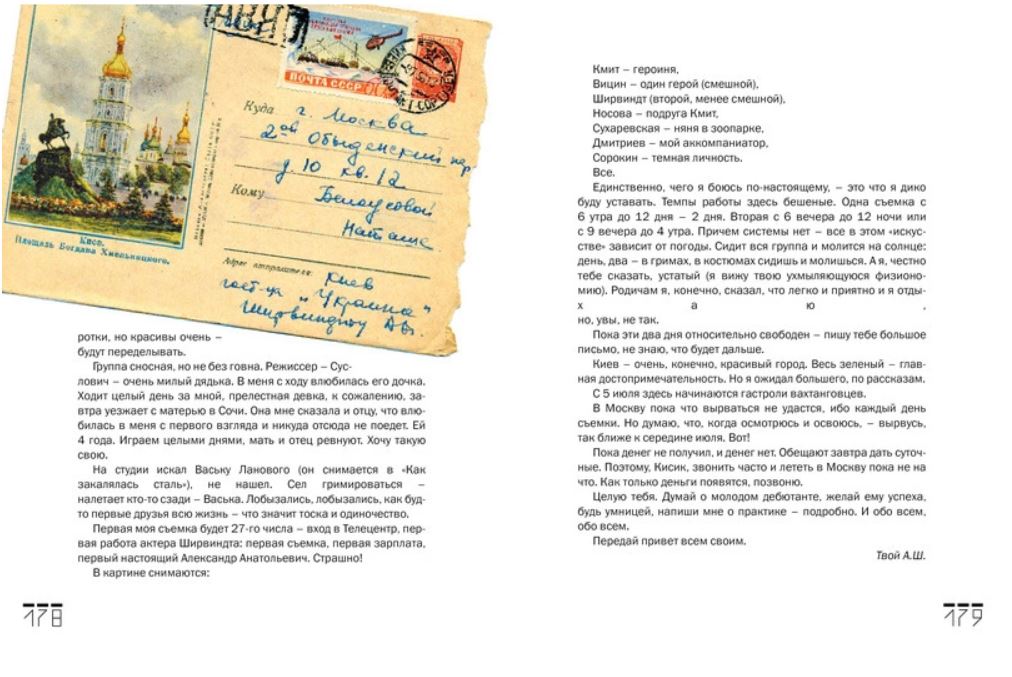 ПОЧТА СССР
Куда г. Москва
2ой Обыденский пер
д. 10 кв. 12
Кому Белоусовой
Наташе
Киев.
Площадь Богдана Хмельницкого.
Адрес отправителя: Киев
гост-ца „Украина"
Ширвиндту А.
ротки, но красивы очень –
будут переделывать.
Группа сносная, но не без говна. Режиссер – Сус-
лович – очень милый дядька. В меня с ходу влюбилась его дочка.
Ходит целый день за мной, прелестная девка, к сожалению, за-
втра уезжает с матерью в Сочи. Она мне сказала и отцу, что влю-
билась в меня с первого взгляда и никуда отсюда не поедет. Ей
4 года. Играем целыми днями, мать и отец ревнуют. Хочу такую
свою.
На студии искал Ваську Ланового (он снимается в «Как
закалялась сталь»), не нашел. Сел гримироваться –
налетает кто-то сзади – Васька. Лобызались, лобызались, как буд-
то первые друзья всю жизнь – что значит тоска и одиночество.
Первая моя съемка будет 27-го числа – вход в Телецентр, пер-
вая работа актера Ширвиндта: первая съемка, первая зарплата,
первый настоящий Александр Анатольевич. Страшно!
В картине снимаются:
178
Кмит – героиня,
Вицин – один герой (смешной),
Ширвиндт (второй, менее смешной),
Носова – подруга Кмит,
Сухаревская – няня в зоопарке,
Дмитриев – мой аккомпаниатор,
Сорокин – темная личность.
Все.
Единственно, чего я боюсь по-настоящему, – это что я дико
буду уставать. Темпы работы здесь бешеные. Одна съемка с
6 утра до 12 дня – 2 дня. Вторая с 6 вечера до 12 ночи или
с 9 вечера до 4 утра. Причем системы нет – все в этом «искус-
стве» зависит от погоды. Сидит вся группа и молится на солнце:
день, два – в гримах, в костюмах сидишь и молишься. А я, честно
тебе сказать, устатый (я вижу твою ухмыляющуюся физионо-
мию). Родичам я, конечно, сказал, что легко и приятно и я отды-
х а ю ,
но, увы, не так.
Пока эти два дня относительно свободен – пишу тебе большое
письмо, не знаю, что будет дальше.
Киев – очень, конечно, красивый город. Весь зеленый – глав-
ная достопримечательность. Но я ожидал большего, по рассказам.
С 5 июля здесь начинаются гастроли вахтанговцев.
В Москву пока что вырваться не удастся, ибо каждый день
съемки. Но думаю, что, когда осмотрюсь и освоюсь, – вырвусь,
так ближе к середине июля. Вот!
Пока денег не получил, и денег нет. Обещают завтра дать суточ-
ные. Поэтому, Кисик, звонить часто и лететь в Москву пока не на
что. Как только деньги появятся, позвоню.
Целую тебя. Думай о молодом дебютанте, желай ему успеха,
будь умницей, напиши мне о практике – подробно. И обо всем,
обо всем.
Передай привет всем своим.
Твой А.Ш.
179